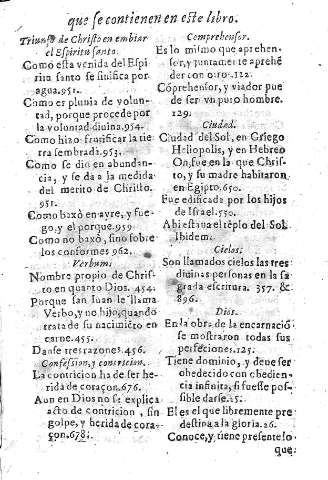 que se contienen en este libro.
Triunfo de Christo en embiar
el Espiritu santo.
Como esta venida del Espi
ritu santo se sinifica por
agua.951.
Como es pluuia de volun-
tad, porque procede por
la voluntad diuina.954.
Como hizo fructificar la tie
rra sembrada.953.
Como se dio en abundan-
cia, y se da a la medida
del merito de Christo.
951.
Como baxò en ayre, y fue-
go, y el porque.959
Como no baxò, sino sobre
los conformes 962.
Verbum.
Nombre propio de Chris-
to en quanto Dios. 454.
Porque san Iuan le llama
Verbo, y no hijo, quando
trata de su nacimiẽto en
carne.455.
Danse tres razones.456.
Confession, y contricion.
La contricion ha de ser he-
rida de coraçon.676.
Aun en Dios no se explica
acto de contricion, sin
golpe, y herida de cora-
çon.678.
Comprehensor.
Es lo mismo que aprehen-
sor, y juntamente aprehẽ
der con otro.122.
Cõprehensor, y viador pue
de ser vn puro hombre.
129.
Ciudad.
Ciudad del Sol, en Griego
Heliopolis, y en Hebreo
On, fue en la que Chris-
to, y su madre habitaron
en Egipto.650.
Fue edificada por los hijos
de Israel.550.
Abi estaua el tẽplo del Sol.
Ibidem.
Cielos.
Son llamados cielos las tres
diuinas personas en la sa
grada escritura. 357. &
896.
Dios.
En la obra de la encarnaciõ
se mostraron todas sus
perfeciones.125.
Tiene dominio, y deue ser
obedecido con obedien-
cia infinita, si fuesse pos-
sible darse.15.
El es el que libremente pre
destina a la gloria.26.
Conoce, y tiene presente lo
que